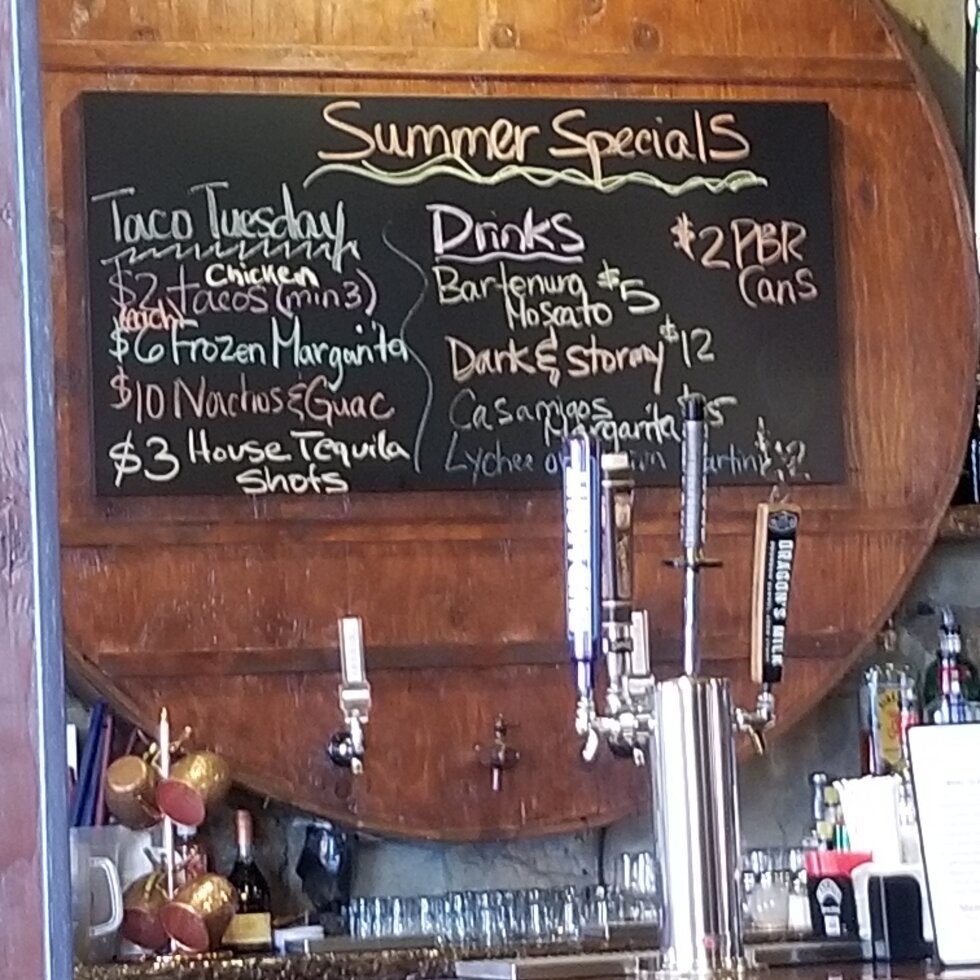 Summer Specials
Taco Tuesday
Chicken
$2 tacos (min 3)
each
$6 Frozen Margarita
$10 Nachos & Guac
$3 House Tequila
Shots
Drinks
Bartenura $5
Moscato
Dark & Stormy $12
Casamigos
Margarita
Lychee
$2 PBR
Cans
DRAGON'S MILK